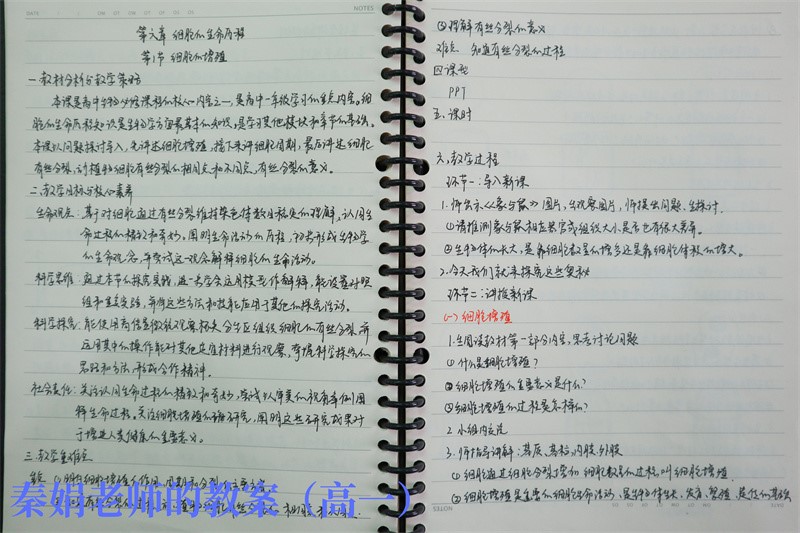 DATE
NOTES
第六章 细胞的生命历程
第1节 细胞的增殖
一.教材分析与教学策略
本课是高中生物必修课程的核心内容之一,是高中一年级学习的重点内容。细
胞的生命历程知识是生物学方面最基本的知识,是学习其他模块和章节的基础。
本课以问题探讨导入,先讲述细胞增殖,接下来讲细胞周期,最后讲述细胞
有丝分裂,动植物细胞有丝分裂的相同点和不同点,有丝分裂的意义。
二.教学目标与核心素养
生命观念:基于对细胞通过有丝分裂维持染色体数目稳定的理解,认同生
命过程的精致和奇妙,阐明生命活动的历程,初步形成生物学
的生命观念,并尝试这一观念解释细胞的生命活动。
科学思维:通过本节的探究实践,进一步学会运用模型作解释,能设置对照
组和重复实验,并将这些方法和技能应用于其他的探究活动。
科学探究:能使用高倍显微镜观察根尖分生区组织细胞的有丝分裂,并
运用其中的操作能对其他适宜材料进行观察,掌握科学探究的
思路和方法,形成合作精神。
社会责任:关注认同生命过程的精致和奇妙,尝试以审美的视角举例阐
释生命过程。关注细胞增殖的调研究,阐明这些研究成果对
于增进人类健康的重要意义。
三.教学重难点
秦娟老师的教案(高一)
③理解有丝分裂的意义
难点:知道有丝分裂的过程
四.课型
PPT
五.课时
六.教学过程
环节一:导入新课
1.师出示《象与鼠》图片,生观察图片,师提出问题,生探讨.
①请推测象与鼠相应器官或组织大小是否也有很大差异。
②生物体的长大,是靠细胞数量的增多还是靠细胞体积的增大。
2.今天我们就来探究这些奥秘
环节二:讲授新课
(一)细胞增殖
1.生阅读教材第一部分内容,思考讨论问题
①什么是细胞增殖?
②细胞增殖的重要意义是什么?
③细胞增殖的过程是怎样的?
2.小组内交流
3.师指导讲解:
①细胞通过细胞分裂增加细胞数量的过程,叫细胞增殖.
②细胞增殖是重要的细胞生命活动,是生物体生长,发育,繁殖,遗传的基础
NOTES
DATE